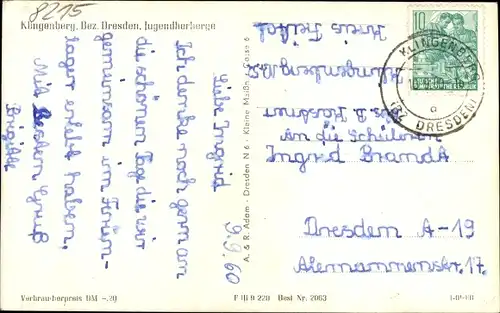 8215
Klingenberg, Bez. Dresden, Jugendherberge
9.9.60
Liebe Ingrid
Ich denke noch gern an
die schönen Tage die wir
gemeinsam im Ferien-
lager erlebt haben,
Mit besten Gruß
Brigitte
A. & R. Adam - Dresden N 6 - Kleine Meißn. Gasse 6
Kreis Freital
Klingenberg
10
KLINGENBERG
(BZ DRESDEN)
a
An die Schülerin
Ingrid Brandt
Dresden A-19
Alemannenstr. 17
Verbraucherpreis DM -.20
F III 9 220 Best Nr. 2063